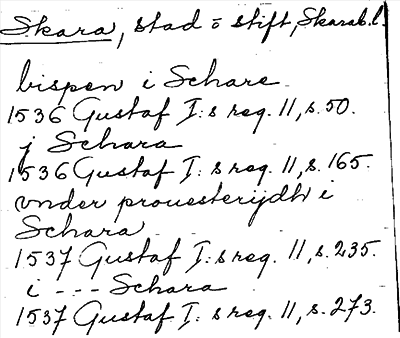 Skara, stad o stift, Skarab.l.
bispen i Schare
1536 Gustaf I:s reg. 11, s. 50.
j Schara
1536 Gustaf I:s reg. 11, s. 165.
vnder prouesterijdh i
Schara
1537 Gustaf I:s reg. 11, s. 235.
i --- Schara
1537 Gustaf I:s reg. 11, s. 273.